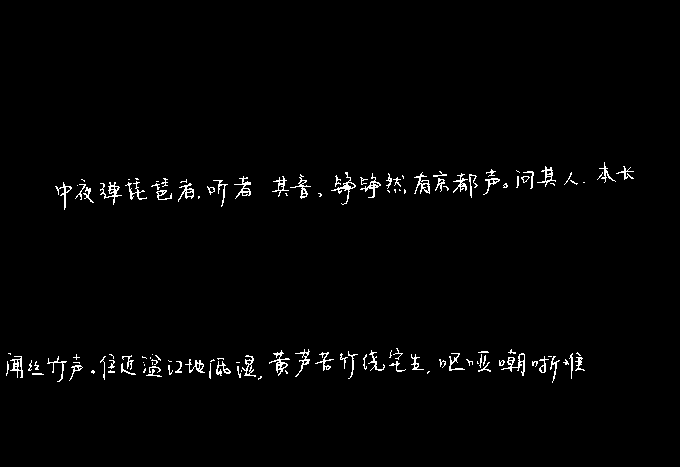 中夜弹琵琶者,听者 其音、铮铮然有京都声。问其人.本长
闻丝竹声。住近湓江地低湿,黄芦苦竹绕宅生,呕哑嘲哳难